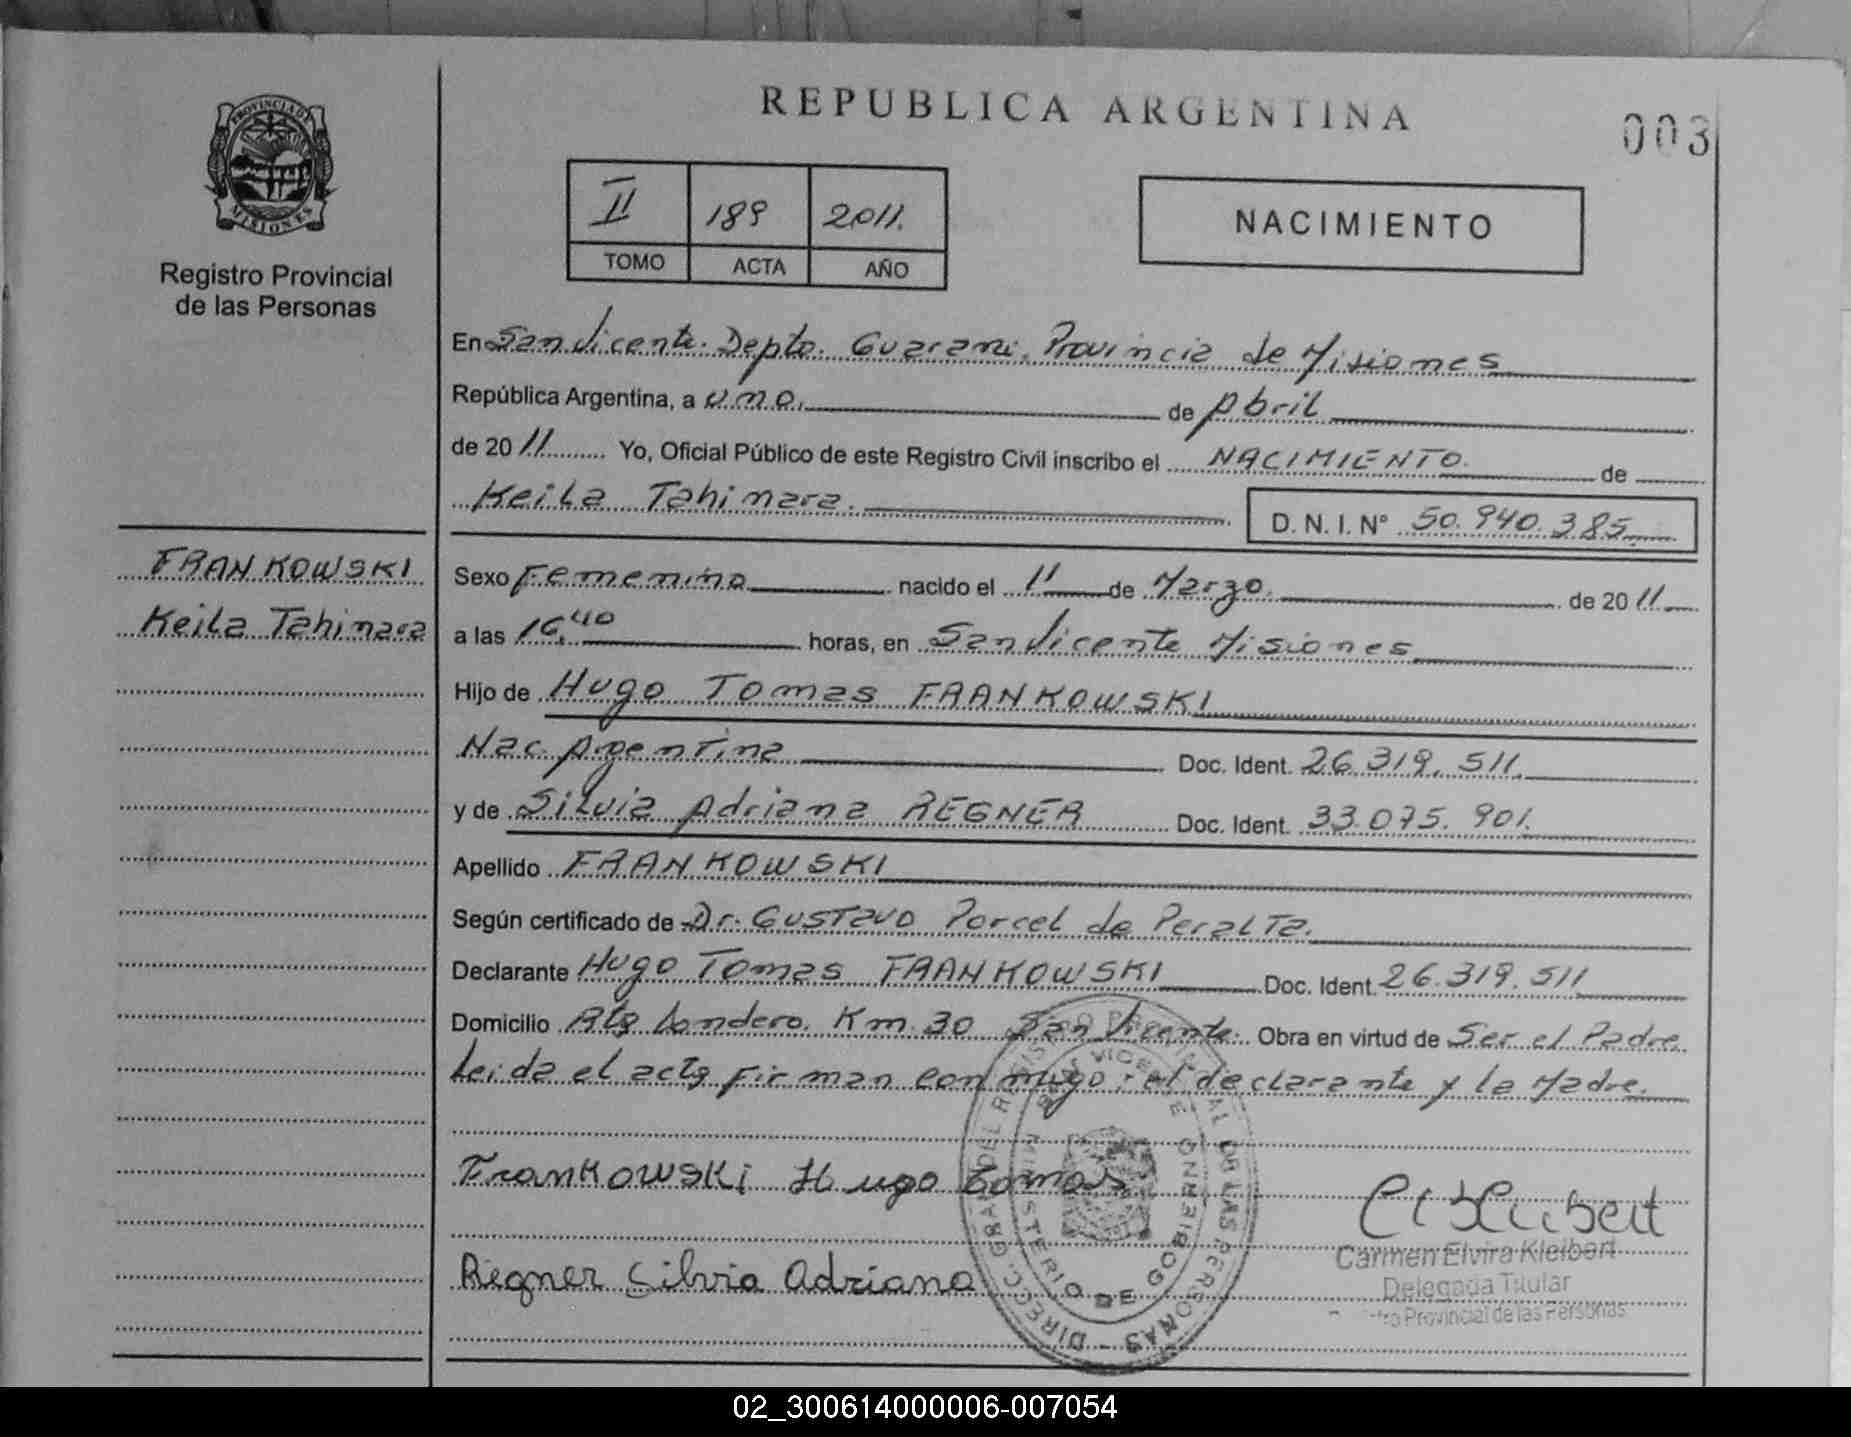 REPUBLICA ARGENTINA
003
PROVINCIA DE
MISIONES
Registro Provincial
de las Personas
II 189 2011.
TOMO ACTA AÑO
NACIMIENTO
En San Vicente. Depto. Guarani. Provincia de Misiones
República Argentina, a uno. de Abril
de 2011 Yo, Oficial Público de este Registro Civil inscribo el NACIMIENTO. de
Keila Tahinara. D. N. I. N° 50.940.385
FRANKOWSKI
Keila Tahinara
Sexo Femenino nacido el 11 de Marzo. de 2011
a las 16,40 horas, en San Vicente Misiones
Hijo de Hugo Tomas FRANKOWSKI
Nac. Argentina Doc. Ident. 26.319.511.
y de Silvia Adriana REGNER Doc. Ident. 33.075.901.
Apellido FRANKOWSKI
Según certificado de Dr. Gustavo Porcel de Peralta.
Declarante Hugo Tomas FRANKOWSKI Doc. Ident. 26.319.511
Domicilio Londero. Km. 30 San Vicente. Obra en virtud de Ser el Padre
Leida el acta firman conmigo: el declarante y la Madre.
Frankowski Hugo Tomas
Regner Silvia Adriana
DIRECC. GRAL. DEL REGISTRO PROVINCIAL DE LAS PERSONAS -
MINISTERIO DE GOBIERNO
SAN VICENTE
Carmen Elvira Kleibert
Delegada Titular
Provincial de las Personas
02_300614000006-007054